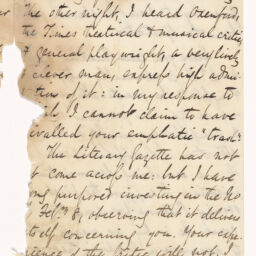 The other night, I heard Oxenford,
the Times theatrical & musical critic,
& general playwright, a very lively
clever man, express high admi-
tion of it: in my response to
I cannot claim to have
ivalled your emphatic "trash".
The Literary Gazette has not
t come across me: but I have
ng purposed investing in the No
Feb. 8, observing that it delivers
itself concerning you. Your expe-
rience of the will not, I